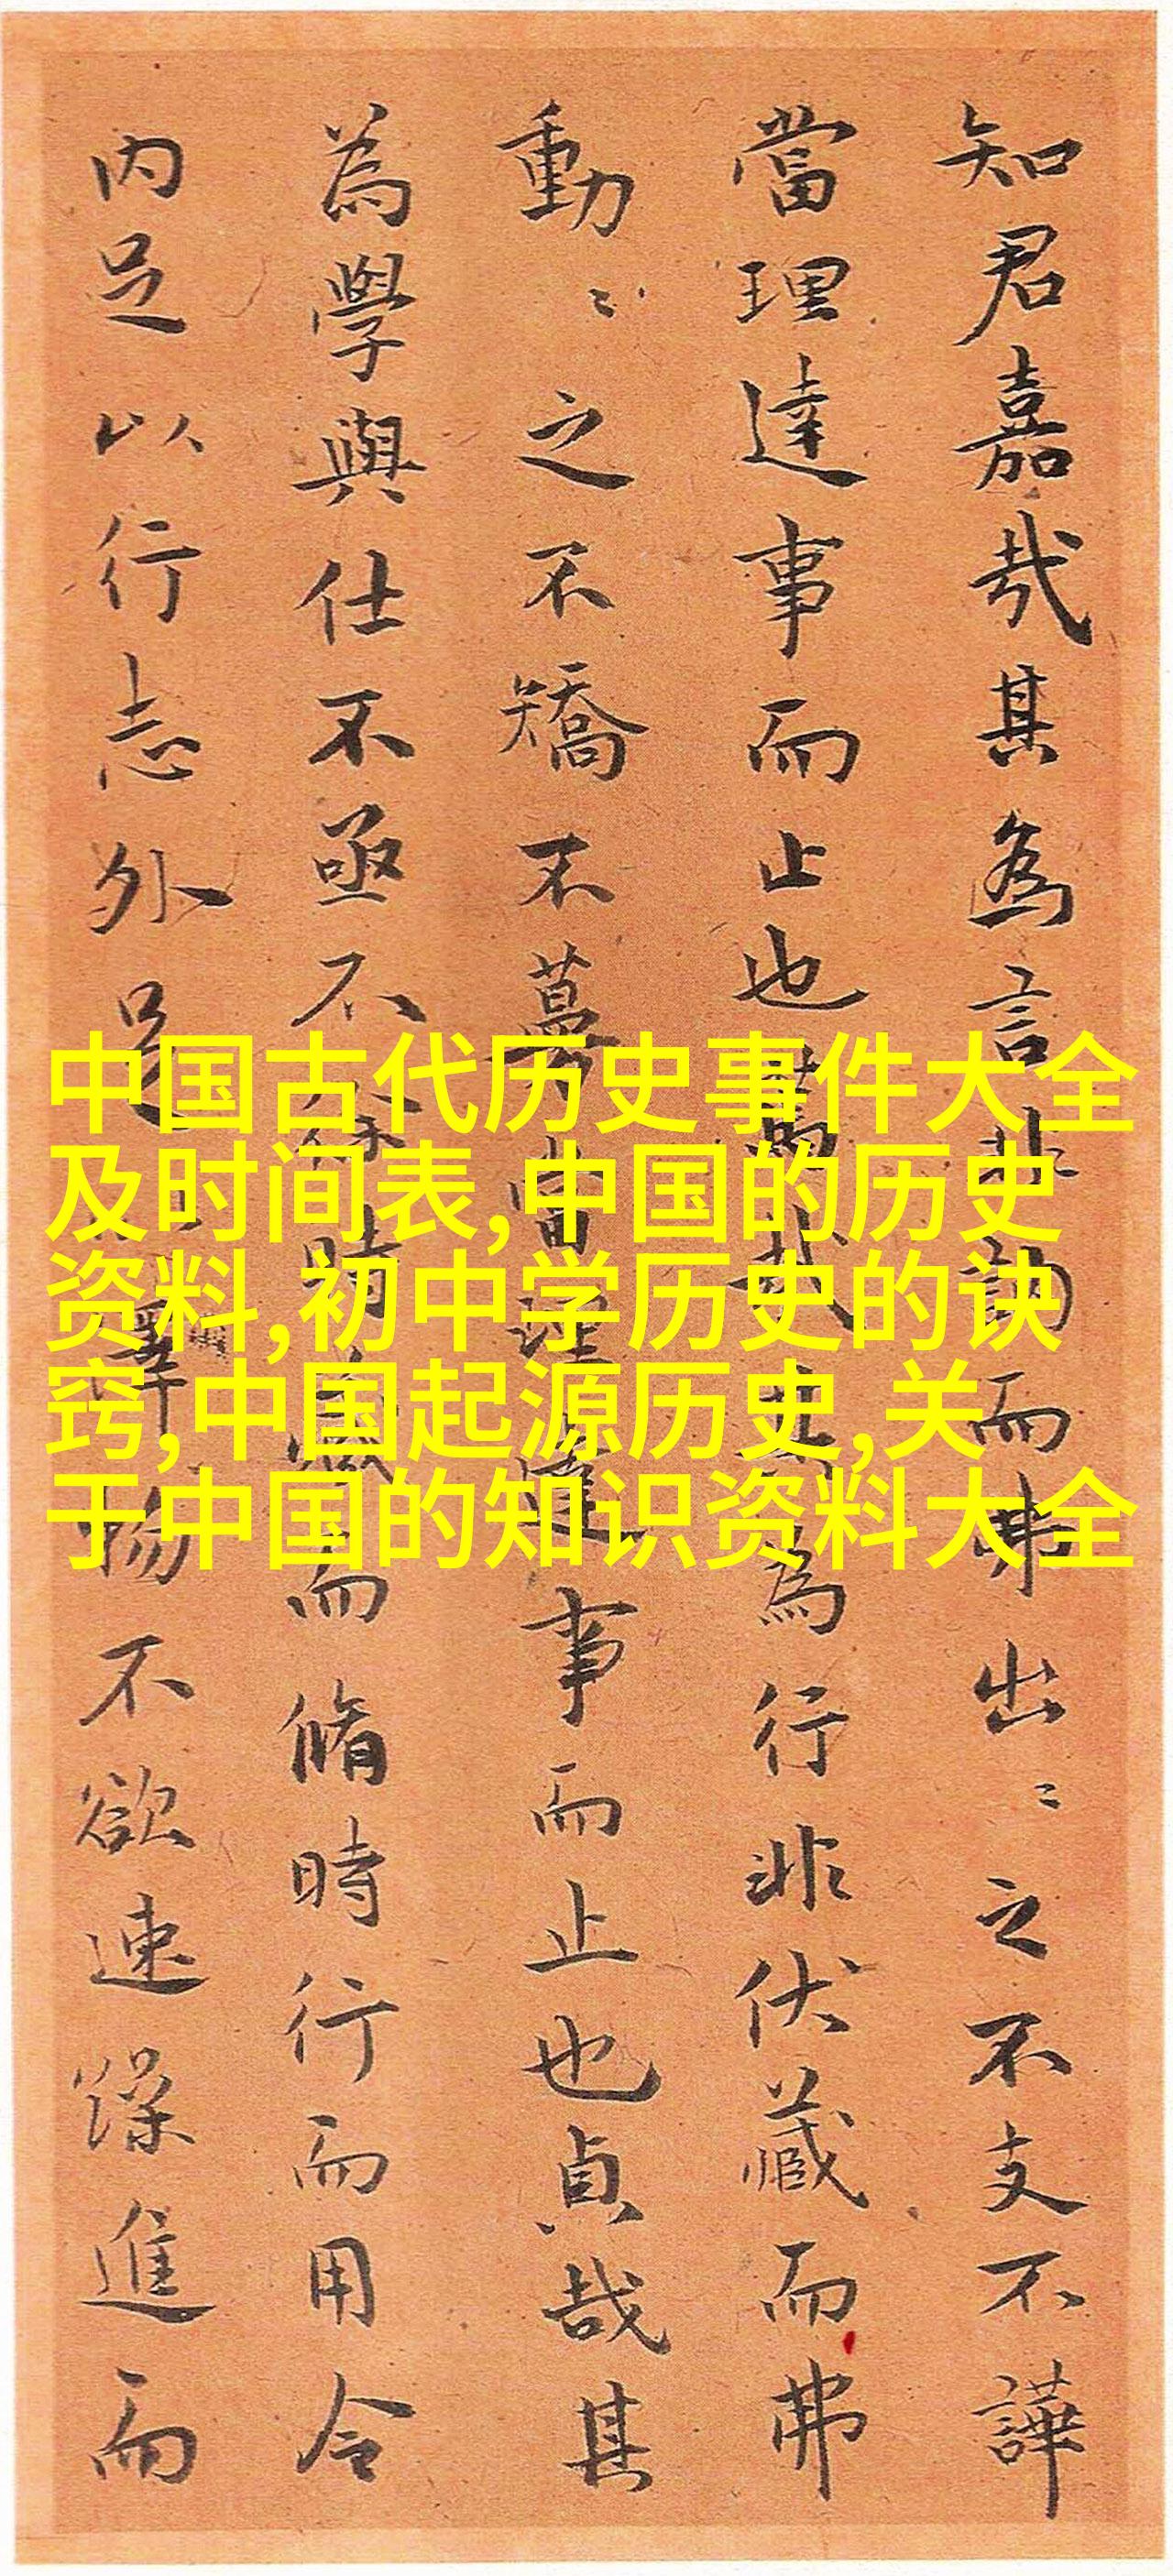 知君嘉哉其為言非訥而弗出〻之不支不譁
當理達事而止也哉其為行非伏藏而弗
動〻之不矯不募當理達事而止也貞哉其
為學與仕不亟不時而脩時行而用令
内足以行志外足澤物不欲速躁進而
中国古代历史事件大全
及时间表,中国的历史
资料,初中学历史的诀
窍,中国起源历史,关
于中国的知识资料大全